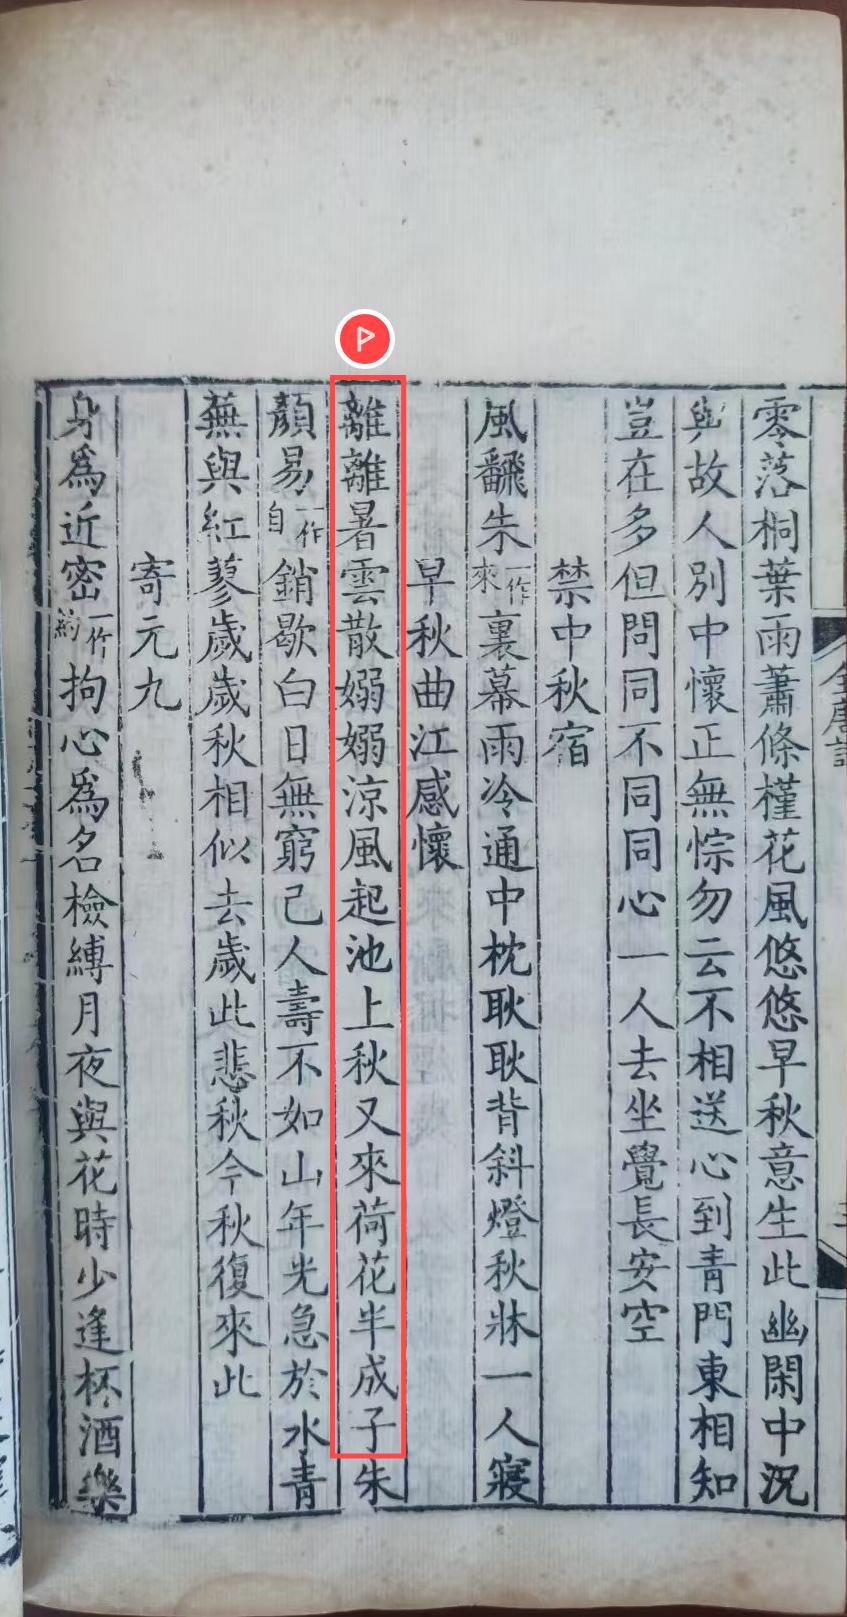 零落桐葉雨蕭條槿花風悠悠早秋意生此幽閑中況
與故人別中懷正無悰勿云不相送心到青門東相知
豈在多但問同不同同心一人去坐覺長安空
禁中秋宿
風飜朱一作來裏幕雨冷通中枕耿耿背斜燈秋牀一人寢
早秋曲江感懷
離離暑雲散嫋嫋涼風起池上秋又來荷花半成子朱
顏易一作自銷歇白日無窮己人壽不如山年光急於水青
蕪與紅蓼歲歲秋相似去歲此悲秋今秋復來此
寄元九
身爲近密一作約拘心爲名檢縛月夜與花時少逢杯酒樂
全唐詩